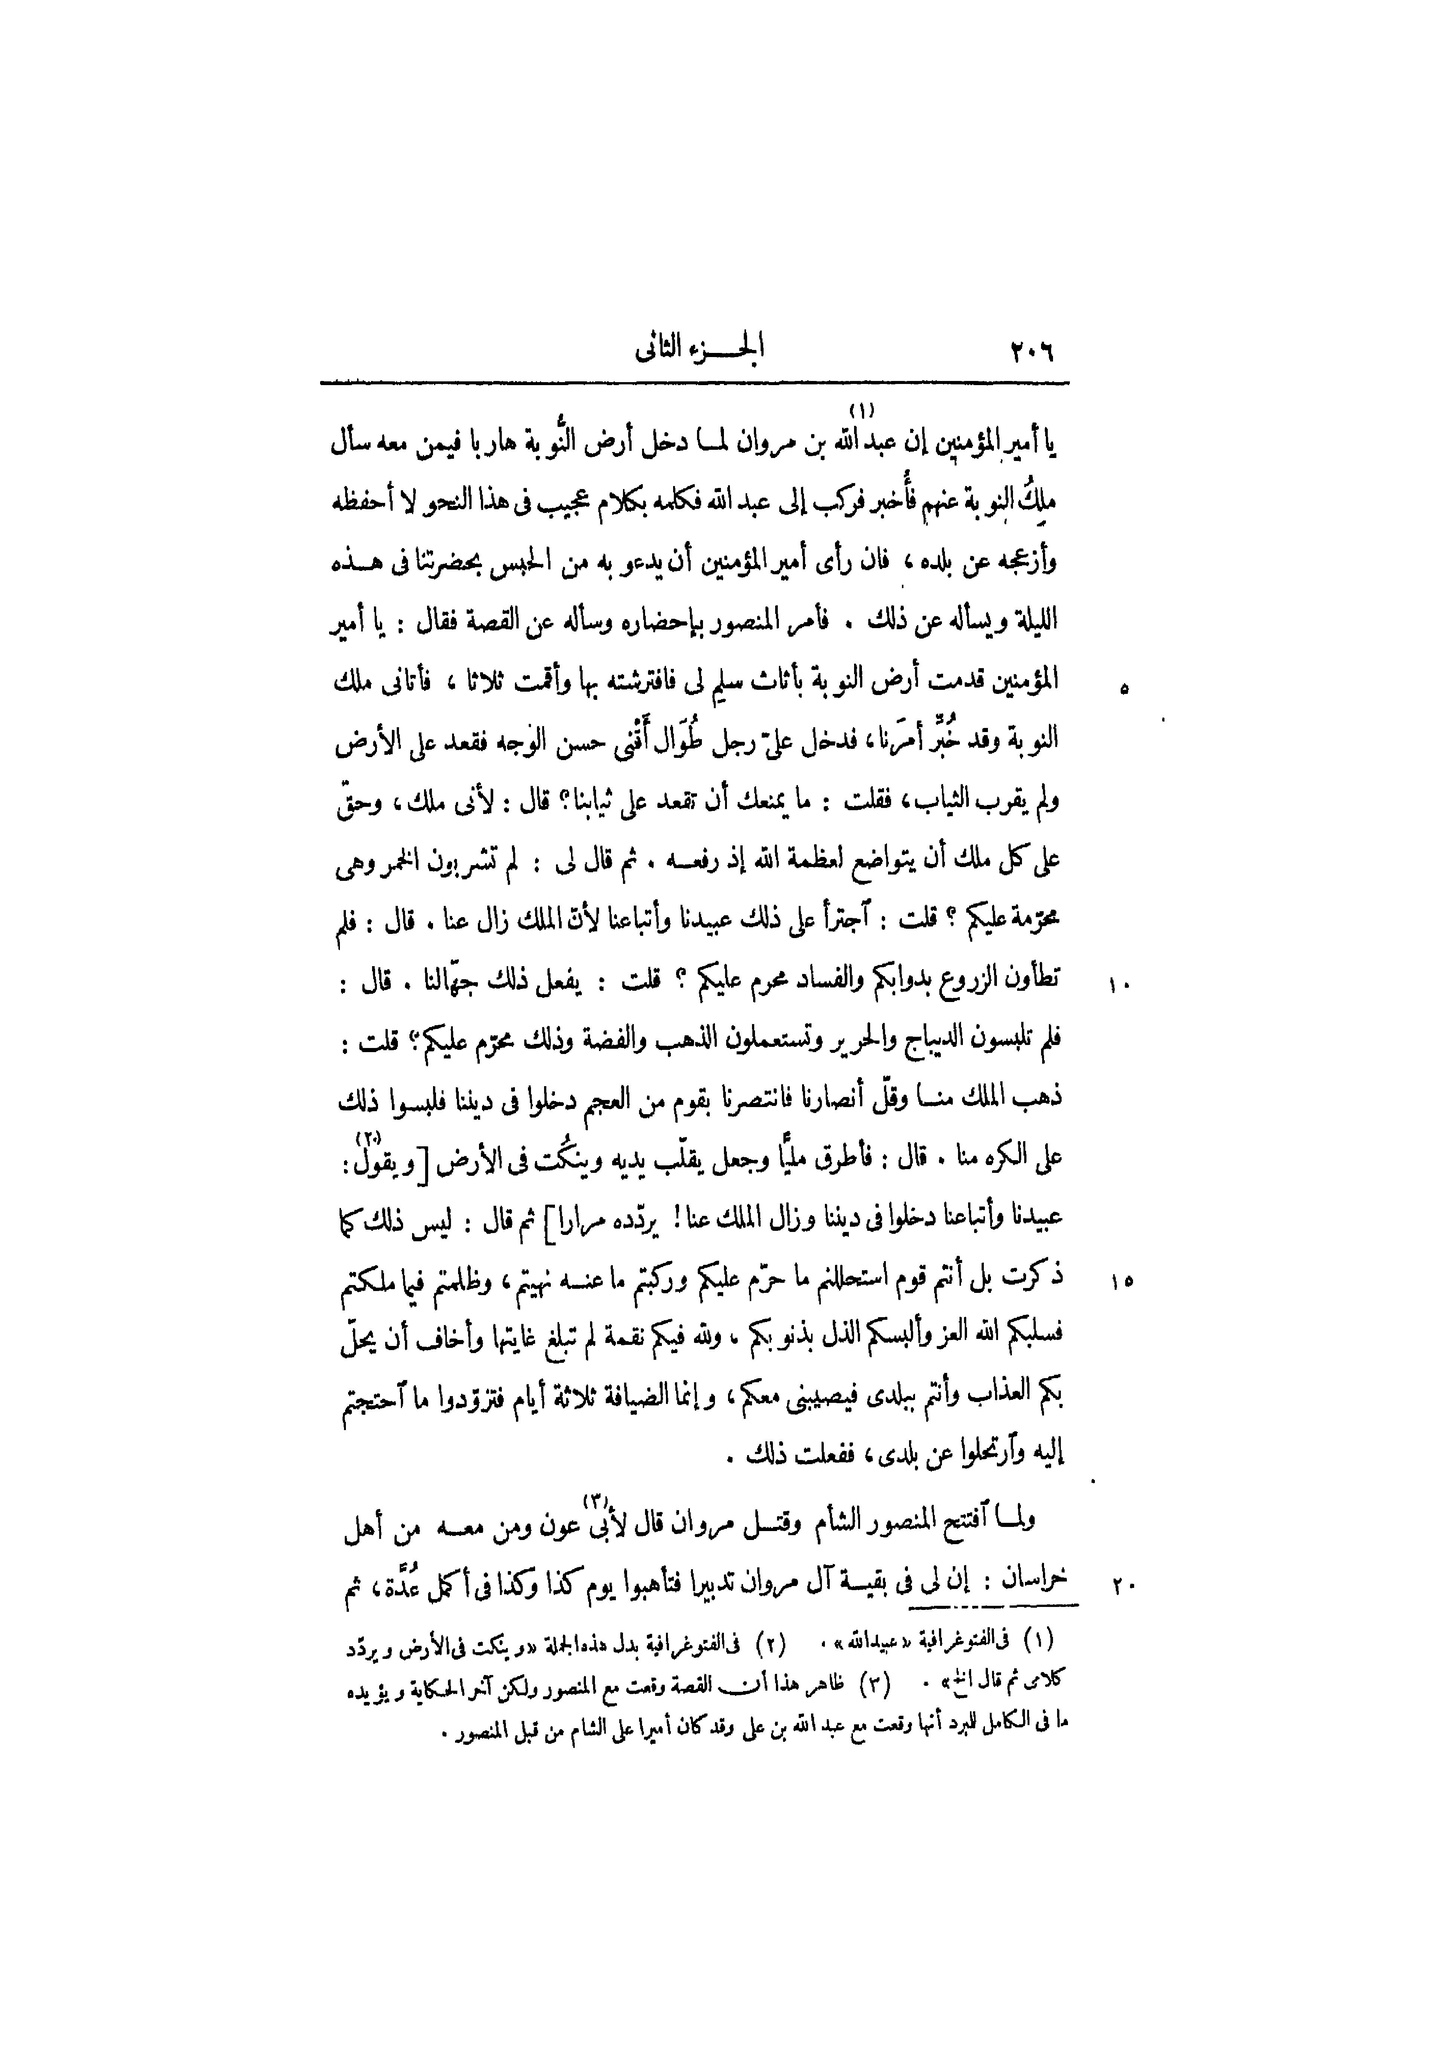 ٢٠٦ الجزء الثانى
يا أمير المؤمنين إن عبد الله (١) بن مروان لما دخل أرض النُّوبة هاربا فيمن معه سأل
ملكُ النوبة عنهم فأُخبر فركب إلى عبد الله فكلمه بكلام عجيب فى هذا النحو لا أحفظه
وأزعجه عن بلده، فان رأى أمير المؤمنين أن يدعو به من الحبس بحضرتنا فى هذه
الليلة ويسأله عن ذلك . فأمر المنصور بإحضاره وسأله عن القصة فقال : يا أمير
المؤمنين قدمت أرض النوبة بأثاث سلم لى فافترشته بها وأقمت ثلاثا، فأتانى ملك ٥
النوبة وقد خُبِّر أمرَنا، فدخل علىّ رجل طُوَال أَقْنى حسن الوجه فقعد على الأرض
ولم يقرب الثياب، فقلت : ما يمنعك أن تقعد على ثيابنا؟ قال : لأنى ملك، وحقّ
على كل ملك أن يتواضع لعظمة الله إذ رفعه . ثم قال لى : لم تشربون الخمر وهى
محرّمة عليكم؟ قلت : ٱجترأ على ذلك عبيدنا وأتباعنا لأنّ الملك زال عنا . قال : فلم
تطأون الزروع بدوابكم والفساد محرم عليكم؟ قلت : يفعل ذلك جهّالنا . قال : ١٠
فلم تلبسون الديباج والحرير وتستعملون الذهب والفضة وذلك محرّم عليكم؟ قلت :
ذهب الملك منا وقلّ أنصارنا فانتصرنا بقوم من العجم دخلوا فى ديننا فلبسوا ذلك
على الكره منا . قال : فأطرق مليًّا وجعل يقلّب يديه وينكُت فى الأرض [ويقول (٢) :
عبيدنا وأتباعنا دخلوا فى ديننا وزال الملك عنا! يردّده مرارا] ثم قال : ليس ذلك كما
ذكرت بل أنتم قوم استحللتم ما حرّم عليكم وركبتم ما عنه نهيتم، وظلمتم فيما ملكتم ١٥
فسلبكم الله العز وألبسكم الذل بذنوبكم، ولله فيكم نقمة لم تبلغ غايتها وأخاف أن يحلّ
بكم العذاب وأنتم ببلدى فيصيبنى معكم، وإنما الضيافة ثلاثة أيام فتزوّدوا ما ٱحتجتم
إليه وٱرتحلوا عن بلدى، ففعلت ذلك .
ولما ٱفتتح المنصور الشأم وقتل مروان قال لأبى (٣) عون ومن معه من أهل
خراسان : إن لى فى بقية آل مروان تدبيرا فتأهبوا يوم كذا وكذا فى أكمل عُدَّة، ثم ٢٠
(١) فى الفتوغرافية «عبيد الله» . (٢) فى الفتوغرافية بدل هذه الجملة «وينكت فى الأرض ويردّد
كلامى ثم قال الخ» . (٣) ظاهر هذا أن القصة وقعت مع المنصور ولكن آخر الحكاية ويؤيده
ما فى الكامل للبرد أنها وقعت مع عبد الله بن على وقد كان أميرا على الشام من قبل المنصور .